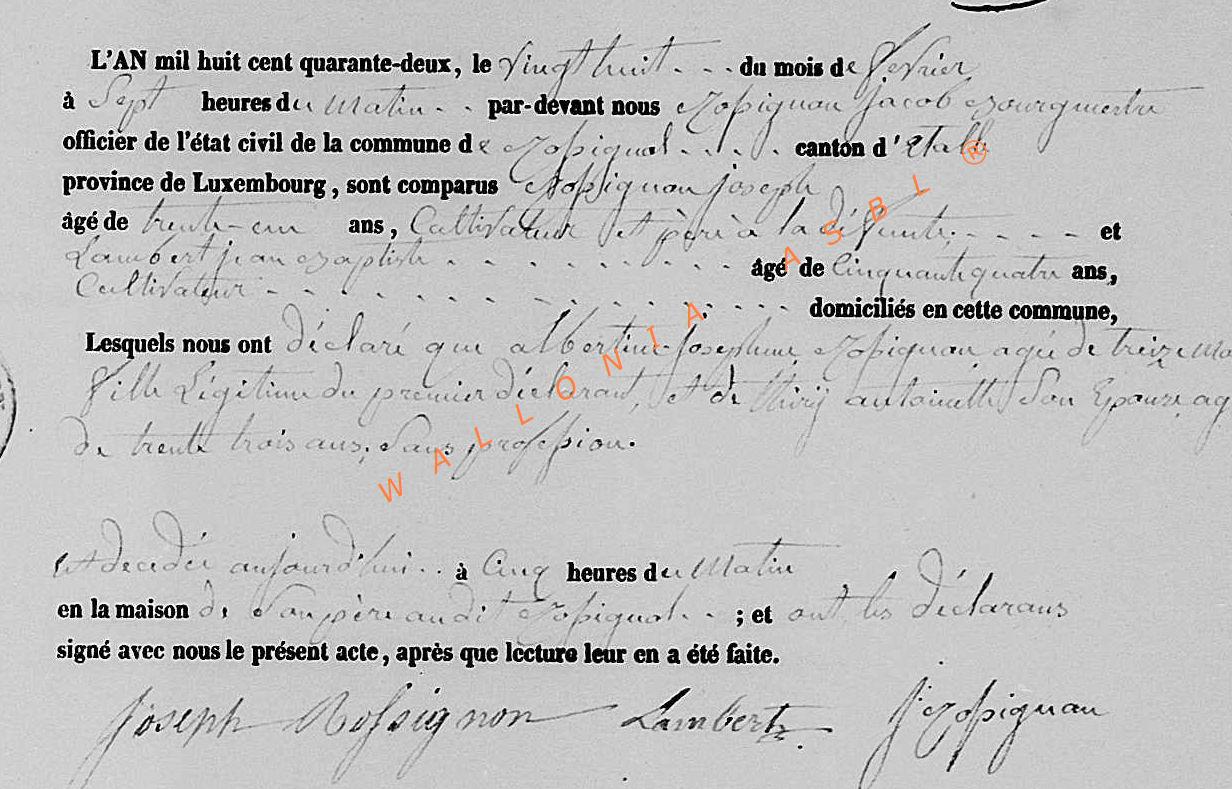 L'AN mil huit cent quarante-deux, le vingt huit - - du mois de fevrier
à Sept heures du Matin - - par-devant nous Rossignon Jacob Bourgmestre
officier de l'état civil de la commune de Rossignol - - - - canton d'Etalle
province de Luxembourg, sont comparus Rossignon joseph
âgé de trente-un ans, Cultivateur et père à la défunte - - - - et
Lambert jean Baptiste - - - - - - - - - - âgé de Cinquante quatre ans,
Cultivateur - - - - - - - - - - - - - - - - domiciliés en cette commune,
Lesquels nous ont déclaré que albertine Josephine Rossignon agée de treize Mo
fille Légitime du premier déclarant, et de Thiry antoinette Son Epouse, ag
de trente trois ans, Sans profession.
Est decedée aujourd'hui - - à Cinq heures du Matin
en la maison de Son père audit Rossignol - - ; et ont les déclarans
signé avec nous le présent acte, après que lecture leur en a été faite.
Joseph Rossignon Lambert J Rossignon
WALLONIA ASBL ®